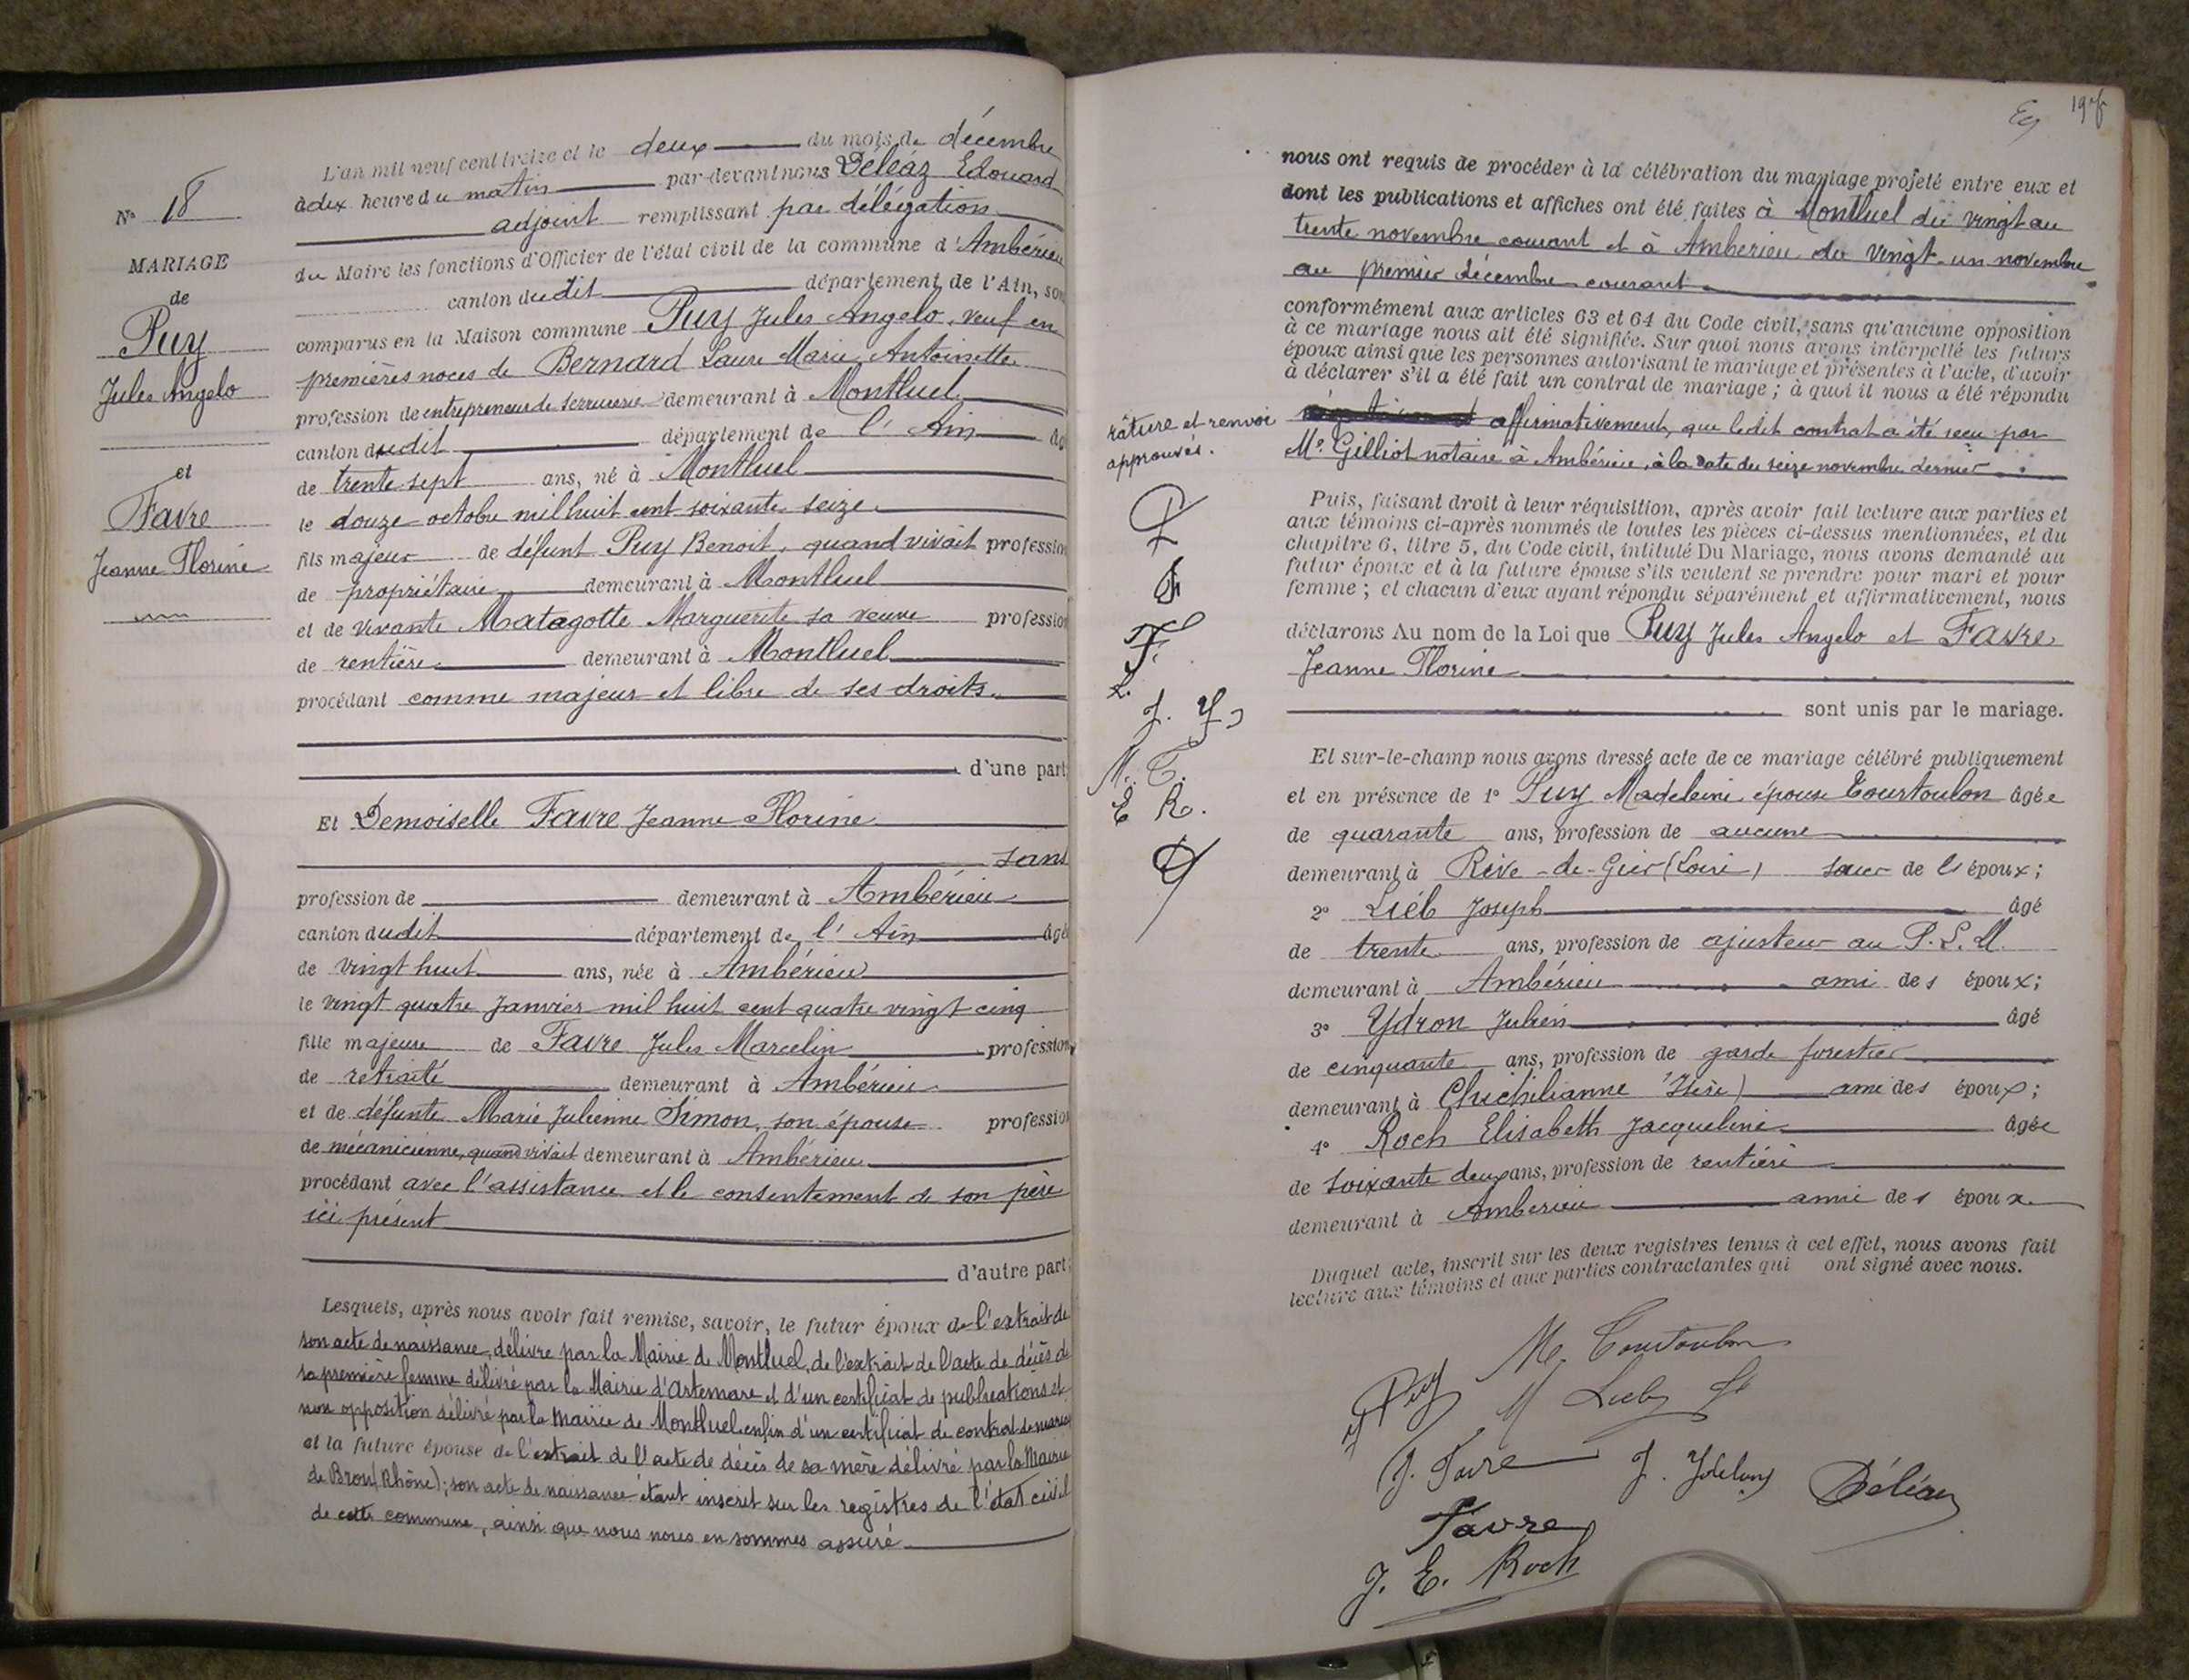 N° 18
MARIAGE
de
Puy
Jules Angelo
et
Favre
Jeanne Florine
L'an mil neuf cent treize et le deux du mois de décembre
à dix heure du matin par-devant nous Déléaz Edouard
adjoint remplissant par délégation
du Maire les fonctions d'Officier de l'état civil de la commune d'Ambérieu
canton dudit département de l'Ain, son
comparus en la Maison commune Puy Jules Angelo, veuf en
premières noces de Bernard Laure Marie Antoinette
profession de entrepreneur de serrurerie demeurant à Montluel
canton dudit département de l'Ain âg
de trente sept ans, né à Montluel
le douze octobre mil huit cent soixante seize
fils majeur de défunt Puy Benoit, quand vivait profession
de propriétaire demeurant à Montluel
et de vivante Matagotte Marguerite sa veuve profession
de rentière demeurant à Montluel
procédant comme majeur et libre de ses droits.
d'une part;
Et Demoiselle Favre Jeanne Florine
sans
profession de demeurant à Ambérieu
canton dudit département de l'Ain âgé
de vingt huit ans, née à Ambérieu
le vingt quatre Janvier mil huit cent quatre vingt cinq
fille majeure de Favre Jules Marcelin profession
de retraité demeurant à Ambérieu
et de défunte Marie Julienne Simon, son épouse profession
de mécanicienne, quand vivait demeurant à Ambérieu
procédant avec l'assistance et le consentement de son père
ici présent
d'autre part;
Lesquels, après nous avoir fait remise, savoir, le futur époux de l'extrait de
son acte de naissance, délivré par la Mairie de Montluel, de l'extrait de l'acte de décès de
sa première femme délivré par la Mairie d'Artemare et d'un certificat de publications et
non opposition délivré par la Mairie de Montluel enfin d'un certificat de contrat de mariage
et la future épouse de l'extrait de l'acte de décès de sa mère délivré par la Mairie
de Bron (Rhône); son acte de naissance étant inscrit sur les registres de l'état civil
de cette commune, ainsi que nous nous en sommes assuré
nous ont requis de procéder à la célébration du mariage projeté entre eux et
dont les publications et affiches ont été faites à Montluel du vingt au
trente novembre courant et à Ambérieu du vingt-un novembre
au premier décembre courant
conformément aux articles 63 et 64 du Code civil, sans qu'aucune opposition
à ce mariage nous ait été signifiée. Sur quoi nous avons interpellé les futurs
époux ainsi que les personnes autorisant le mariage et présentes à l'acte, d'avoir
à déclarer s'il a été fait un contrat de mariage ; à quoi il nous a été répondu
affirmativement, que ledit contrat a été reçu par
Me Gilliot notaire à Ambérieu, à la date du seize novembre dernier
rature et renvoi
approuvés.
Puis, faisant droit à leur réquisition, après avoir fait lecture aux parties et
aux témoins ci-après nommés de toutes les pièces ci-dessus mentionnées, et du
chapitre 6, titre 5, du Code civil, intitulé Du Mariage, nous avons demandé au
futur époux et à la future épouse s'ils veulent se prendre pour mari et pour
femme ; et chacun d'eux ayant répondu séparément et affirmativement, nous
déclarons Au nom de la Loi que Puy Jules Angelo et Favre
Jeanne Florine
sont unis par le mariage.
M. C.
E R.
Et sur-le-champ nous avons dressé acte de ce mariage célébré publiquement
et en présence de 1° Puy Madeleine épouse Courtoulon âgée
de quarante ans, profession de aucune
demeurant à Rive-de-Gier (Loire) sœur de l's époux;
2° Liéb Joseph âgé
de trente ans, profession de ajusteur au P.L.M.
demeurant à Ambérieu ami des époux;
3° Ydron Julien âgé
de cinquante ans, profession de garde forestier
demeurant à Chichilianne (Isère) ami des époux;
4° Roch Elisabeth Jacqueline âgée
de soixante deux ans, profession de rentière
demeurant à Ambérieu amie des époux
Duquel acte, inscrit sur les deux registres tenus à cet effet, nous avons fait
lecture aux témoins et aux parties contractantes qui ont signé avec nous.
M. Courtoulon
Puy
J. Favre
Déléaz
Favre
J. E. Roch